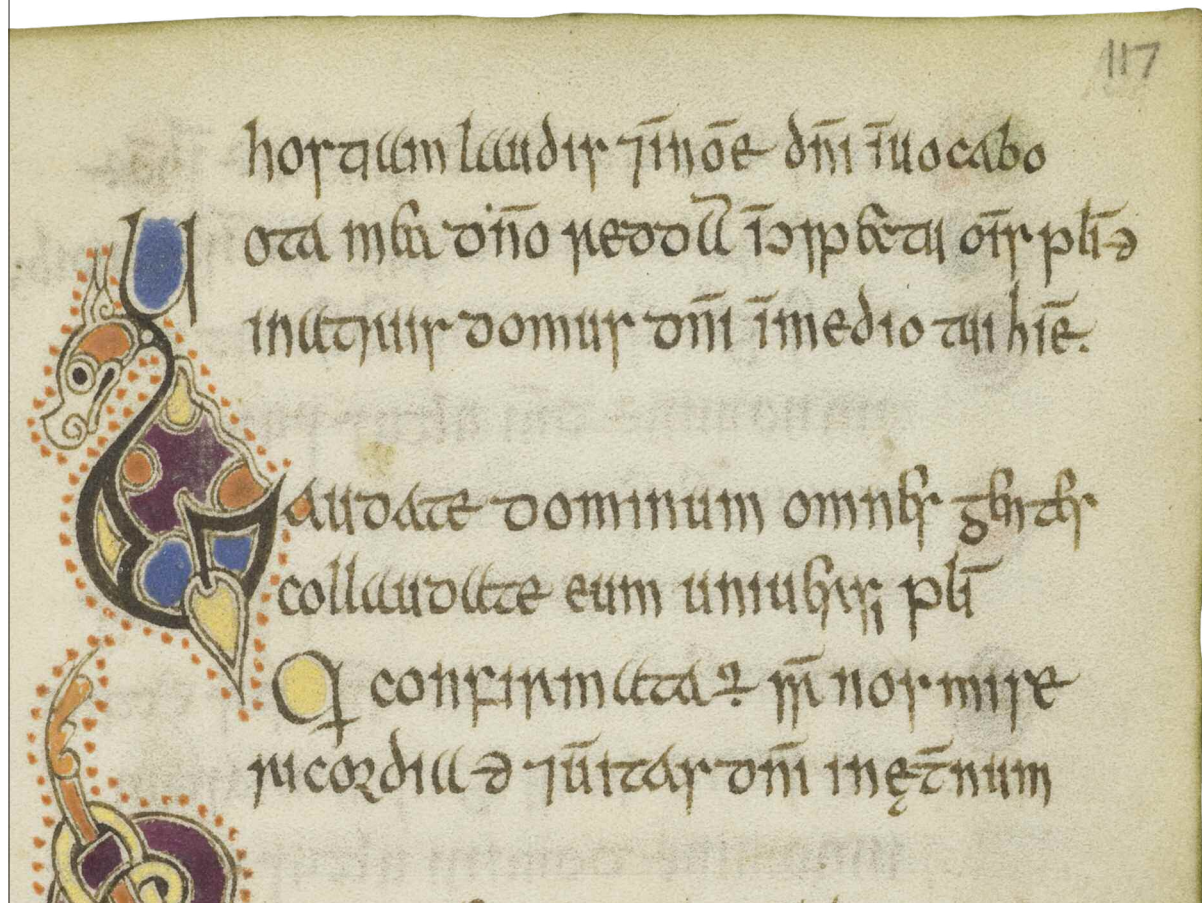 117
hostiam laudis ⁊ īnoē dn̄i īuocabo
Uota mea dn̄o reddā īↄspectu om̄s pl̄i ꝫ
inatriis domus dn̄i īmedio tui hiē.
Laudate dominum omnes gentes
collaudate eum uniuersi pl̄i
Q confirmata ÷ sr̄ nos mise
ricordia ꝫ ⁊ ūitas dn̄i inęt̄num